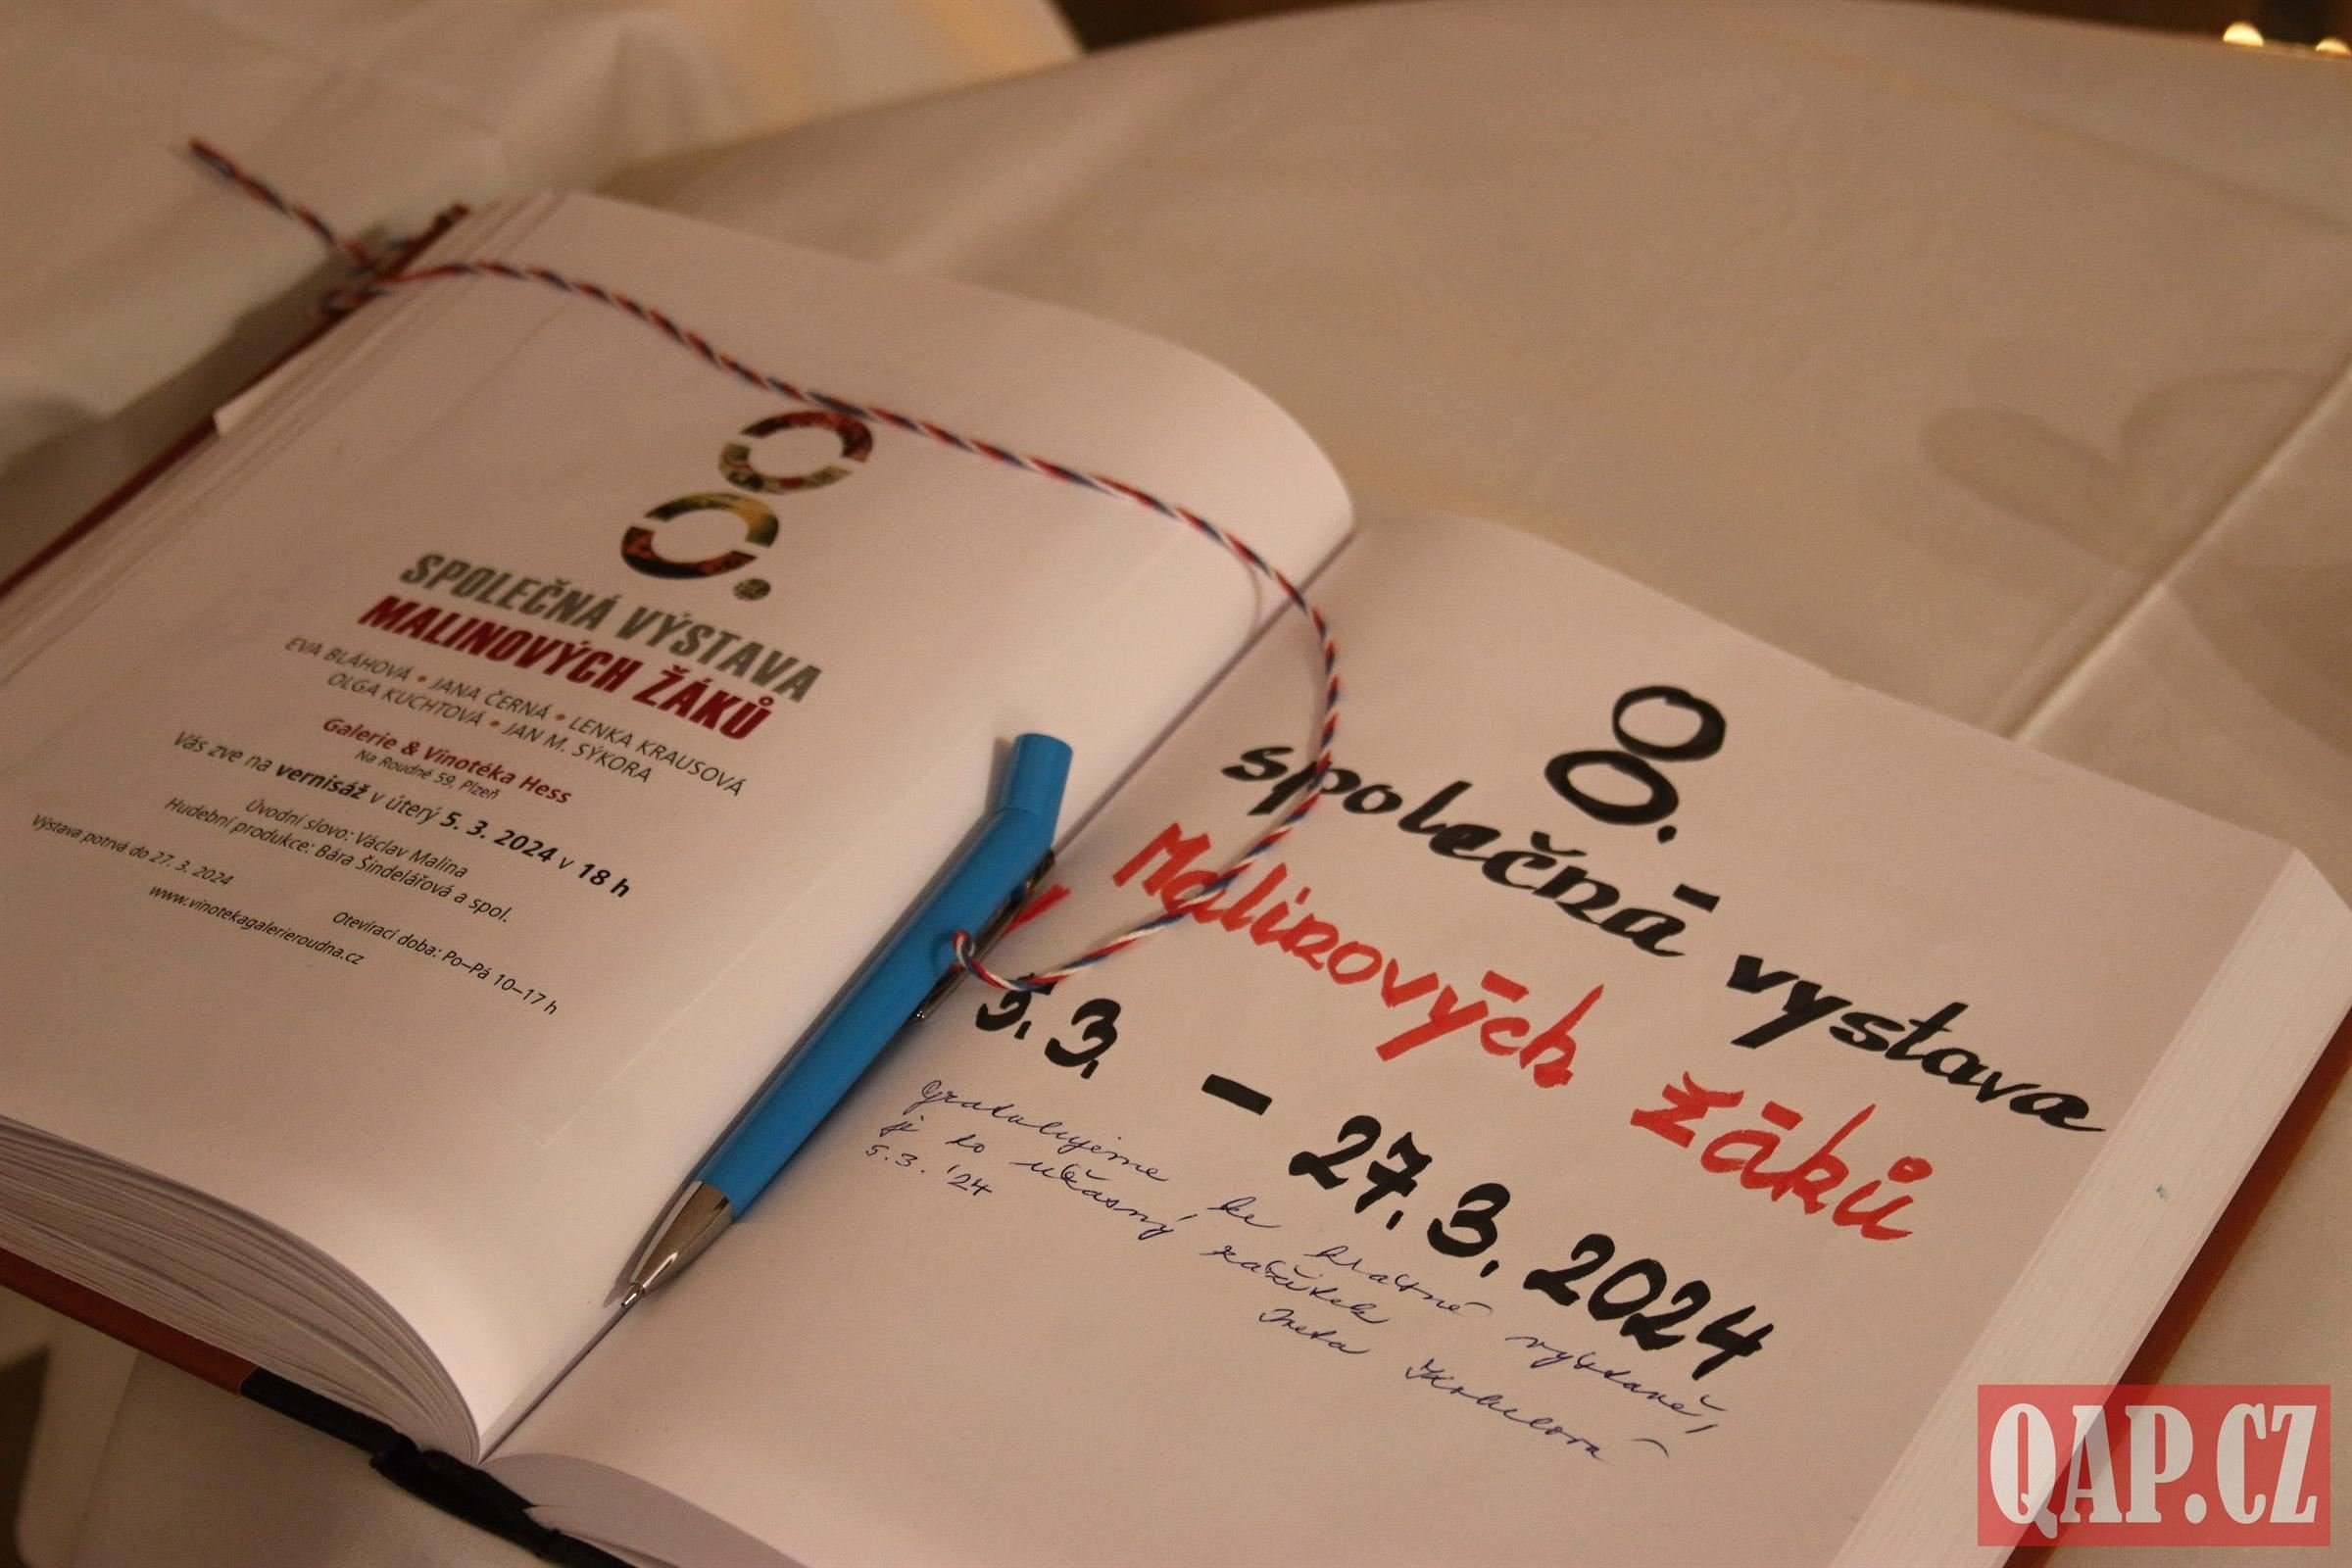 8.
SPOLEČNÁ VÝSTAVA
MALINOVÝCH ŽÁKŮ
EVA BLÁHOVÁ • JANA ČERNÁ • LENKA KRAUSOVÁ
OLGA KUCHTOVÁ • JAN M. SÝKORA
Galerie & Vinotéka Hess
Na Roudné 59, Plzeň
Vás zve na vernisáž v úterý 5. 3. 2024 v 18 h
Úvodní slovo: Václav Malina
Hudební produkce: Bára Šindelářová a spol.
Výstava potrvá do 27. 3. 2024
Otevírací doba: Po–Pá 10–17 h
www.vinotekagalerieroudna.cz
8.
společná vystava
Malinových žáků
5.3. – 27.3. 2024
Gratulujeme ke krásné výstavě,
je to úžasný zážitek
5.3. '24
QAP.CZ